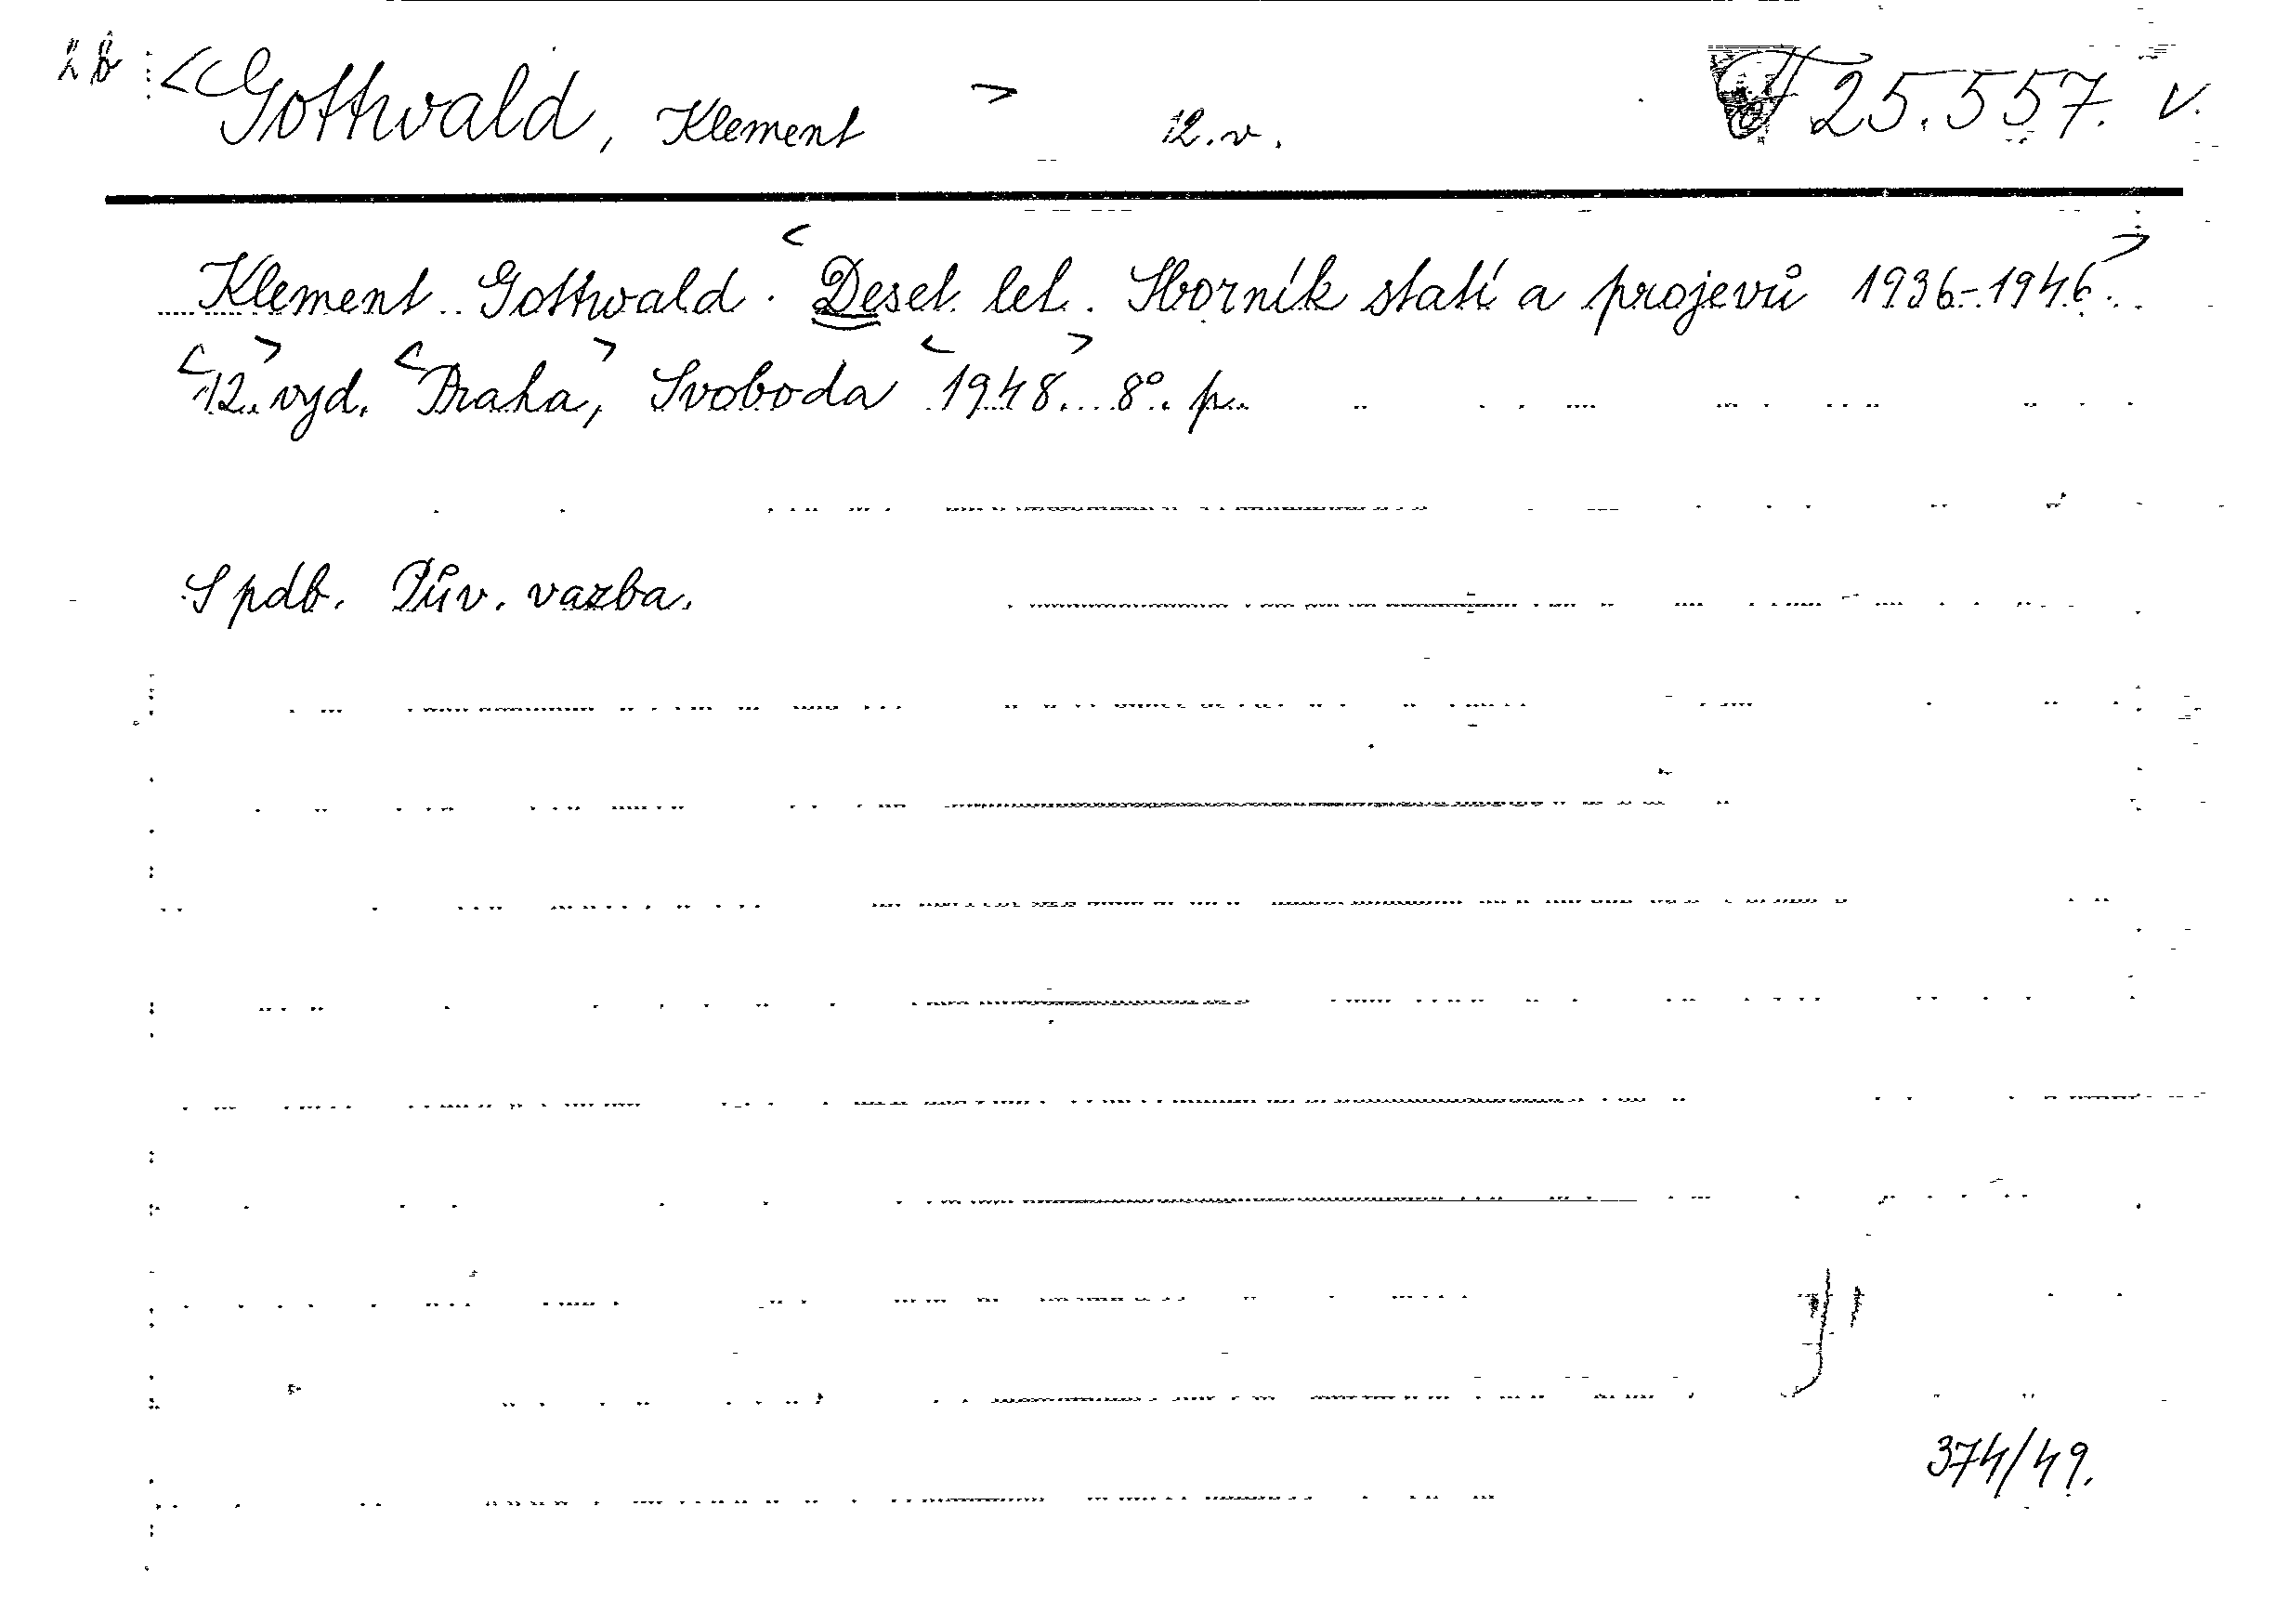 2b <Gottwald, Klement > 12.v. 25.557. v.
Klement Gottwald. <Deset let. Sborník statí a projevů 1936-1946.>
<12.> vyd. <Praha,> Svoboda <1948.> 8°. p.
S pdb. Pův. vazba.
374/49.